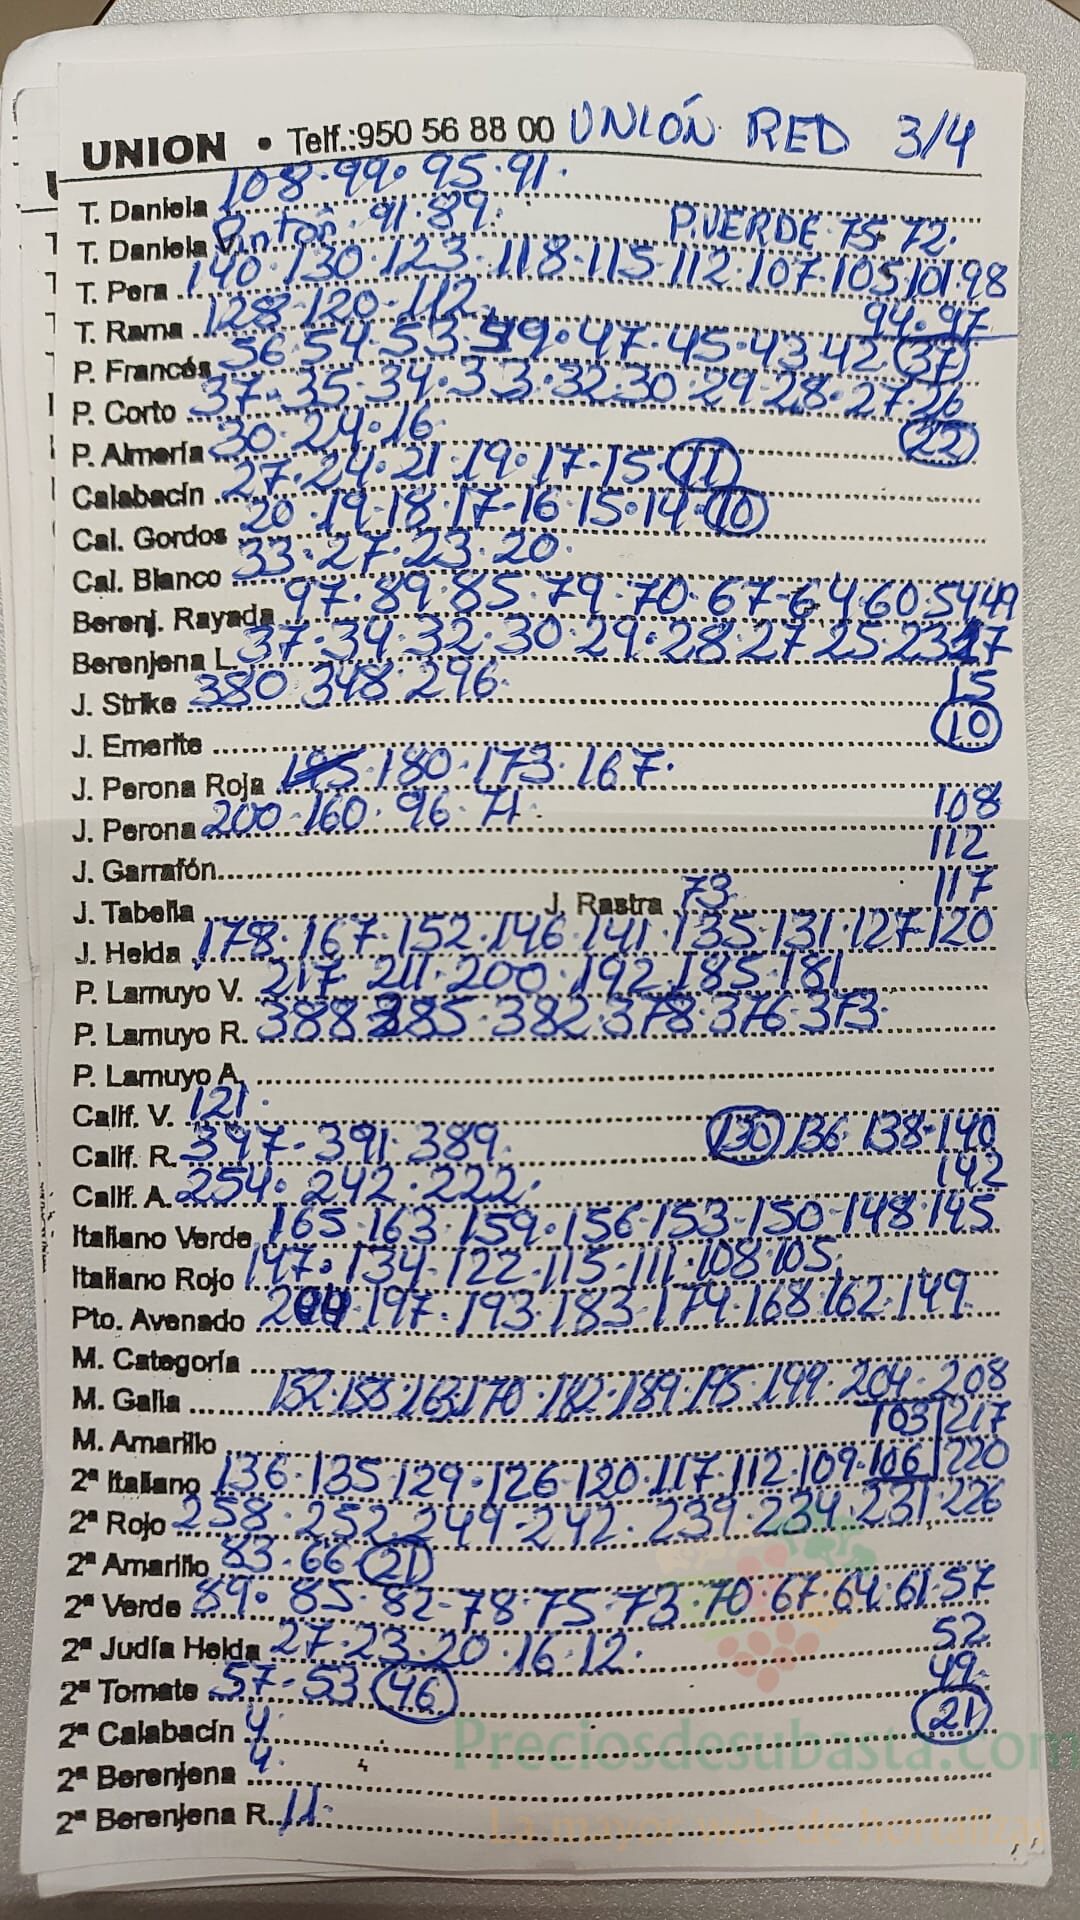 UNION • Telf.:950 56 88 00 UNIÓN RED 3/4
T. Daniela 108·99·95·91·
T. Daniela V. Pintón·91·89· P.VERDE·75·72·
T. Pera 140·130·123·118·115·112·107·105·101·98
T. Rama 128·120·112 94·97
P. Francés 56·54·53·49·47·45·43·42 (37)
P. Corto 37·35·34·33·32·30·29·28·27·26
P. Almería 30·24·16 (22)
Calabacín 27·24·21·19·17·15·(11)
Cal. Gordos 20·19·18·17·16·15·14·(10)
Cal. Blanco 33·27·23·20·
Berenj. Rayada 97·89·85·79·70·67·64·60·54·49
Berenjena L. 37·34·32·30·29·28·27·25·23·17
J. Strike 380·348·296· 15
J. Emerite (10)
J. Perona Roja 195·180·173·167·
J. Perona 200·160·96·71· 108
J. Garrafón 112
J. Tabella J. Rastra 73 117
J. Helda 178·167·152·146·141·135·131·127·120
P. Lamuyo V. 217·211·200·192·185·181
P. Lamuyo R. 388·385·382·378·376·373·
P. Lamuyo A.
Calif. V. 121·
Calif. R. 397·391·389· (130) 136·138·140
Calif. A. 254·242·222· 142
Italiano Verde 165·163·159·156·153·150·148·145
Italiano Rojo 147·134·122·115·111·108·105
Pto. Avenado 204·197·193·183·174·168·162·149
M. Categoría
M. Galia 152·158·163·170·182·189·195·199·204·208
M. Amarillo 103 217
2ª Italiano 136·135·129·126·120·117·112·109·106 220
2ª Rojo 258·252·249·242·239·234·231·226
2ª Amarillo 83·66·(21)
2ª Verde 89·85·82·78·75·73·70·67·64·61·57
2ª Judía Helda 27·23·20·16·12· 52
2ª Tomate 57·53 (46) 49
2ª Calabacín 4· (21)
2ª Berenjena 4·
2ª Berenjena R. 11·
Preciosdesubasta.com
La mayor web de hortalizas